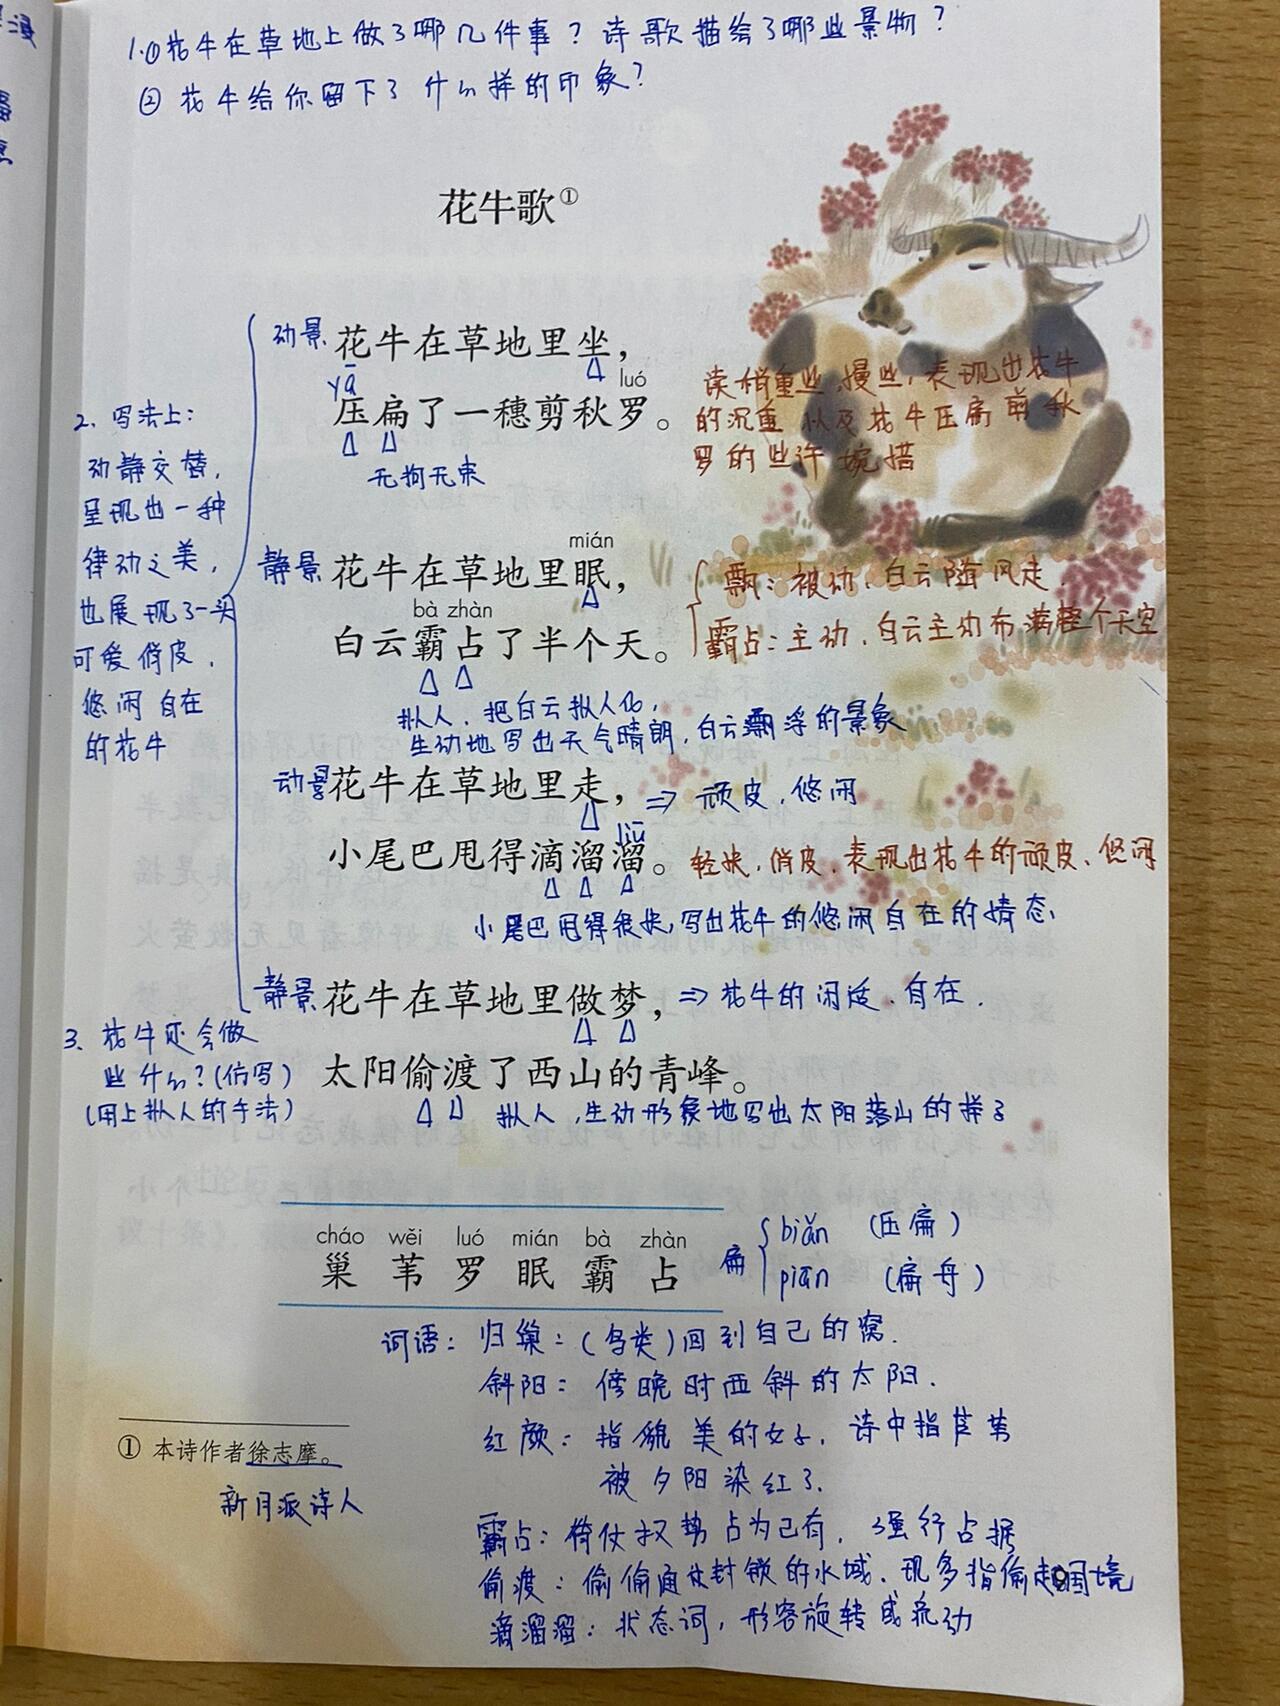 1.①花牛在草地上做了哪几件事？诗歌描绘了哪些景物？
②花牛给你留下了什么样的印象？
花牛歌①
动景 花牛在草地里坐，
yā
luó
压扁了一穗剪秋罗。
无拘无束
读稍重些、慢些，表现出花牛
的沉重以及花牛压扁剪秋
罗的些许尴尬
2、写法上：
动静交替，
呈现出一种
律动之美，
也展现了一头
可爱俏皮、
悠闲自在
的花牛
mián
静景 花牛在草地里眠，
bà zhàn
白云霸占了半个天。
飘：被动，白云随风走
霸占：主动，白云主动布满整个天空
拟人，把白云拟人化，
生动地写出天气晴朗，白云飘浮的景象
动景 花牛在草地里走，⇒ 顽皮、悠闲
liū
小尾巴甩得滴溜溜。
轻快、俏皮，表现出花牛的顽皮、悠闲
小尾巴甩得很快，写出花牛的悠闲自在的情态
静景 花牛在草地里做梦，⇒ 花牛的闲适、自在.
太阳偷渡了西山的青峰。
拟人，生动形象地写出太阳落山的样子
3、花牛还会做
些什么？(仿写)
(用上拟人的手法)
cháo wěi luó mián bà zhàn
巢 苇 罗 眠 霸 占
扁 biǎn (压扁)
piān (扁舟)
词语：归巢：(鸟类)回到自己的窝.
斜阳：傍晚时西斜的太阳.
红颜：指貌美的女子，诗中指芦苇
被夕阳染红了.
霸占：倚仗权势占为己有，强行占据
偷渡：偷偷通过封锁的水域，现多指偷越国境
滴溜溜：状态词，形容旋转或流动
① 本诗作者徐志摩。
新月派诗人
9